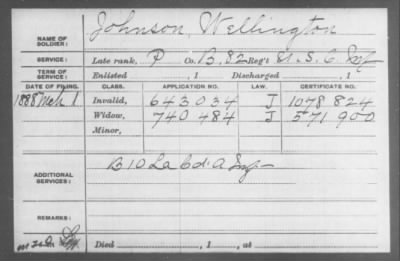 NAME OF SOLDIER: Johnson, Wellington
SERVICE: Late rank, P Co. B, 82 Reg't U.S.C. Inf
TERM OF SERVICE: Enlisted , 1 Discharged , 1
DATE OF FILING. CLASS. APPLICATION NO. LAW. CERTIFICATE NO.
1888 Mch 1 Invalid, 643034 J 1078824
Widow, 740484 J 571900
Minor,
ADDITIONAL SERVICES: B 10 La Cd. A Inf
REMARKS:
Died , 1 , at